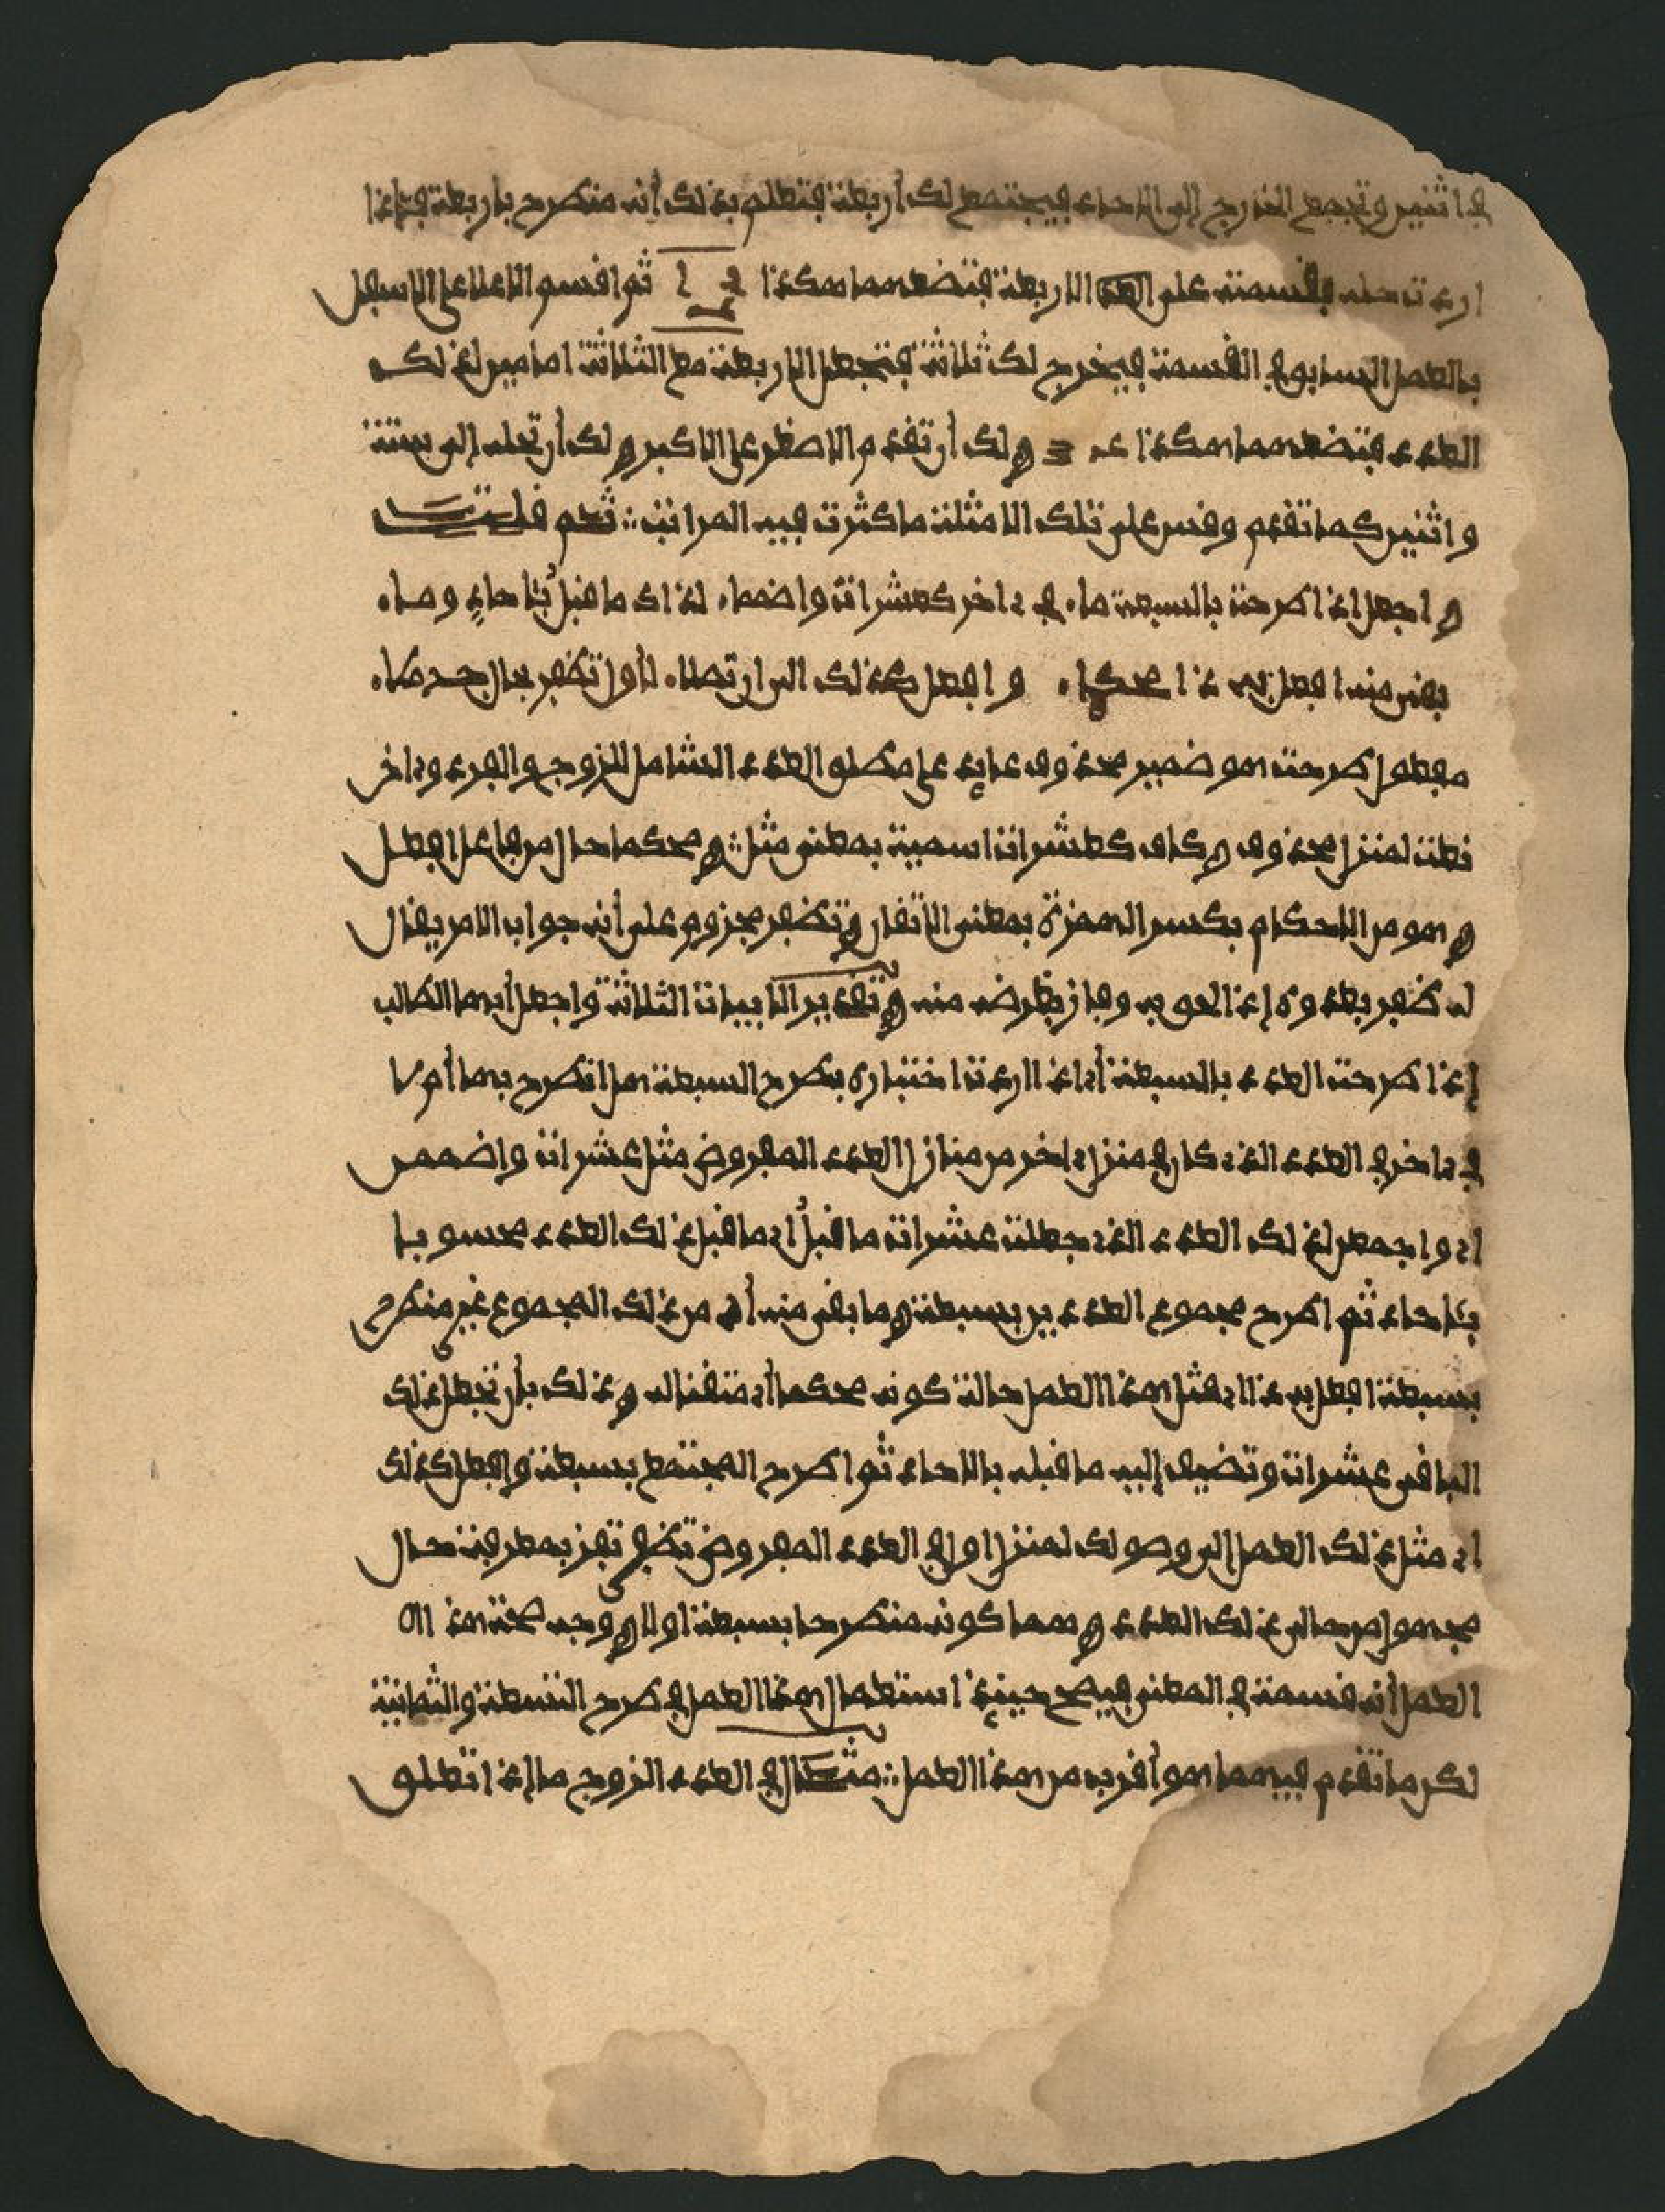 في اثنين وتجمع الخارج إلى الاحاد فيجتمع لك أربعة فتعلم بذلك أنه منطرح باربعة فإذا
اردت حله بقسمته على الاربعة فتضعهما هكذا ثم اقسم الاعلا على الاسفل
بالعمل السابق في القسمة فيخرج لك ثلاثة فتجعل الاربعة مع الثلاثة امامين لذلك
العدد فتضعهما هكذا ولك أن تقدم الاصغر على الاكبر ولك أن تحله إلى ستة
واثنين كما تقدم وقس على تلك الامثلة ما كثرت فيه المراتب ∴ ثم قلت
واجعل إذا طرحت بالسبعة ما، في ءاخر كعشرات واضمما، لذاك ما قبل بئاحاد وما،
بقى منه افعل به ذا محكما، وافعل كذلك الى ان تصلا، لأول تظفر بحال جهلا،
مفعول طرحت هو ضمير محذوف عايد على مطلق العدد الشامل للزوج والفرد وءاخر
نعت لمنزل محذوف وكاف كعشرات اسمية بمعنى مثل ∴ ومحكما حال من فاعل افعل
وهو من الاحكام بكسر الهمزة بمعنى الاتقان وتظفر مجزوم على أنه جواب الامر يقال
له ظفر بعدوه إذا لحق به وفاز بغرضه منه وتقدير الابيات الثلاثة واجعل أيها الطالب
إذا طرحت العدد بالسبعة أي اذا اردت اختباره بطرح السبعة هل انطرح بها أم لا
في ءاخر في العدد الذي كان في منزل ءاخر من منازل العدد المفروض مثل عشرات واضممن
اي واجمعن لذلك العدد الذي جعلته عشرات ما قبل أي ما قبل ذلك العدد محسوبا
بئاحاد ثم اطرح مجموع العددين بسبعة وما بقى منه أي من ذلك المجموع غير منطرح
بسبعة افعل به ذا اي مثل هذا العمل حالة كونه محكما أي متقنا له وذلك بأن تجعل ذلك
الباقي عشرات وتضيف إليه ما قبله بالاحاد ثم اطرح المجتمع بسبعة وافعل كذلك
اي مثل ذلك العمل إلى وصولك لمنزل اول في العدد المفروض تظفر تفز بمعرفة حال
مجهول من حالي ذلك العدد وهما كونه منطرحا بسبعة اولا ووجه صحة هذا
العمل أنه قسمة في المعنى فيصح حينئذ استعمال هذا العمل في طرح التسعة والثمانية
لكن ما تقدم فيهما هو أقرب من هذا العمل ∴ مثال في العدد الزوج ما إذا تعلق